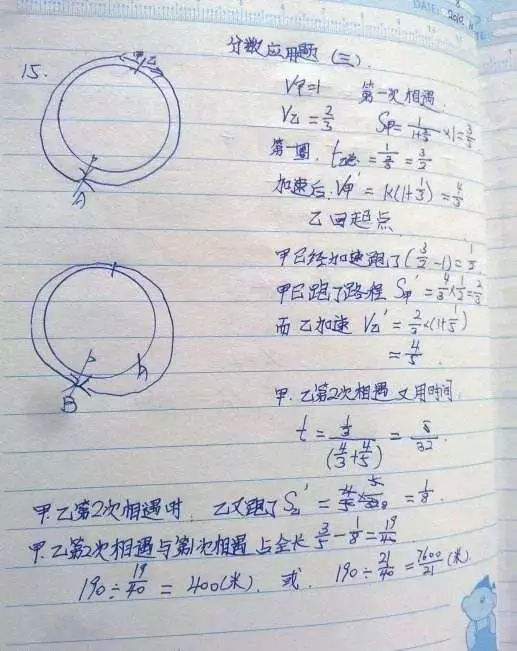 DATE:
分数应用题 (三).
15.
甲 乙
V甲=1 第一次相遇.
V乙=2/3 S甲=1/(1+2/3)×1=3/5
第一圈. t乙总=1/(2/3)=3/2
加速后. V甲'=1×(1+1/3)=4/3
A
乙回起点
甲已经加速跑了(3/2-1)=1/2
甲已跑了路程 S甲'=4/3×1/2=2/3
而乙加速 V乙'=2/3×(1+1/5)
=4/5.
B
甲.乙第2次相遇又用时间
t=(1/3)/(4/3+4/5)=5/32.
甲.乙第2次相遇时. 乙又跑了S乙'=4/5×5/32=1/8.
甲.乙第2次相遇与第1次相遇占全长3/5-1/8=19/40.
190÷19/40=400(米). 或. 190÷21/40=7600/21(米).